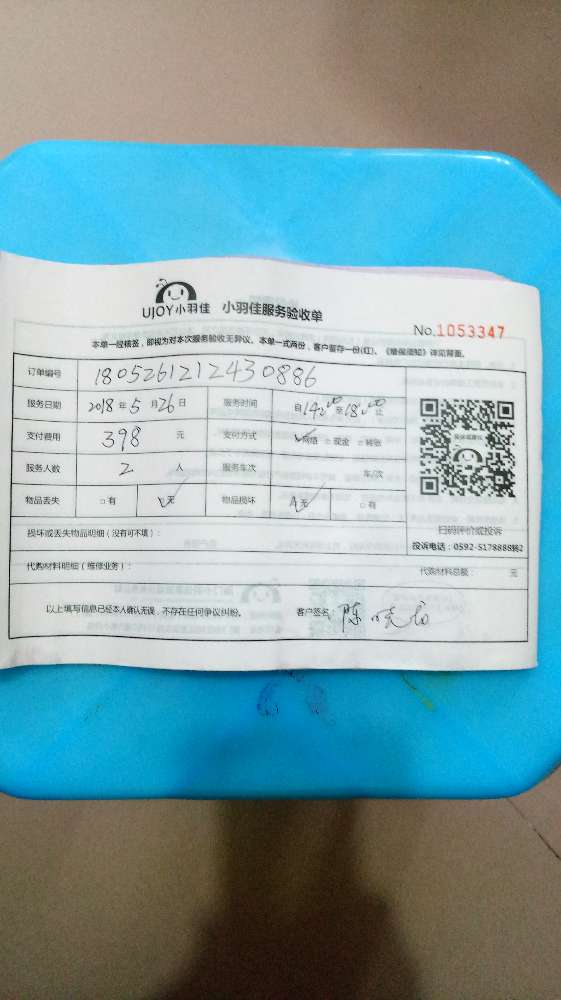 UJOY小羽佳 小羽佳服务验收单
No.1053347
本单一经核签，即视为对本次服务验收无异议。本单一式两份，客户留存一份(红)。《增保须知》详见背面。
订单编号 1805261212430886
服务日期 2018年5月26日 服务时间 自14:00至18:00止
支付费用 398 元 支付方式 ☑网络 □现金 □转账
服务人数 2 人 服务车次 车/次
物品丢失 □有 ☑无 物品损坏 ☑无 □有
扫码评价或投诉
损坏或丢失物品明细（没有可不填）：
投诉电话：0592-5178888转2
代购材料明细（维修业务）： 代购材料总额： 元
以上填写信息已经本人确认无误，不存在任何争议纠纷。 客户签名：陈